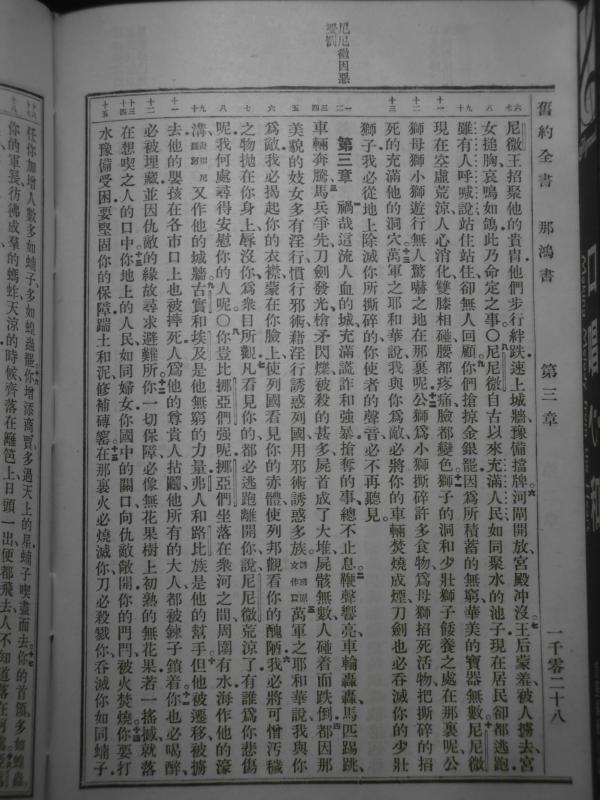 舊約全書 那鴻書 第三章 一千零二十八
尼尼微因惡
受罰
尼微王招聚他的貴冑他們步行絆跌速上城牆豫備擋牌河閘開放宮殿沖沒王后蒙羞被人擄去宮
女搥胸哀鳴如鴿此乃命定之事○尼尼微自古以來充滿人民如同聚水的池子現在居民卻都逃跑
雖有人呼喊說站住站住卻無人回顧你們搶掠金銀罷因爲所積蓄的無窮華美的寶器無數尼尼微
現在空虛荒涼人心消化雙膝相碰腰都疼痛臉都變色獅子的洞和少壯獅子餧養之處在那裏呢公
獅母獅小獅遊行無人驚嚇之地在那裏呢公獅爲小獅撕碎許多食物爲母獅掐死活物把撕碎的掐
死的充滿他的洞穴萬軍之耶和華說我與你爲敵必將你的車輛焚燒成煙刀劍也必吞滅你的少壯
獅子我必從地上除滅你所撕碎的你使者的聲音必不再聽見
第三章 禍哉這流人血的城充滿謊詐和強暴搶奪的事總不止息鞭聲響亮車輪轟轟馬匹踢跳
車輛奔騰馬兵爭先刀劍發光槍矛閃爍被殺的甚多屍首成了大堆屍骸無數人碰着而跌倒都因那
美貌的妓女多有淫行慣行邪術藉淫行誘惑列國用邪術誘惑多族萬軍之耶和華說我與你
爲敵我必揭起你的衣襟蒙在你臉上使列國看見你的赤體使列邦觀看你的醜陋我必將可憎污穢
之物拋在你身上辱沒你爲衆目所觀凡看見你的都必逃跑離開你說尼尼微荒涼了有誰爲你悲傷
呢我何處尋得安慰你的人呢○你豈比挪亞們強呢挪亞們坐落在衆河之間周圍有水海作他的濠
溝又作他的城牆古實和埃及是他無窮的力量弗人和路比族是他的幫手但他被遷移被擄
去他的嬰孩在各市口上也被摔死人爲他的尊貴人拈鬮他所有的大人都被鍊子鎖着你也必喝醉
必被埋藏並因仇敵的緣故尋求避難所你一切保障必像無花果樹上初熟的無花果若一搖撼就落
在想喫之人的口中你地上的人民如同婦女你國中的關口向仇敵敞開你的門閂被火焚燒你要打
水豫備受困要堅固你的保障踹土和泥修補磚窰在那裏火必燒滅你刀必殺戮你吞滅你如同蝻子
任你加增人數多如蝻子多如蝗蟲罷你增添商賈多過天上的星蝻子喫盡而去你的首領多如蝗蟲
你的軍長彷彿成羣的螞蚱天涼的時候齊落在籬笆上日頭一出便都飛去人不知道落在